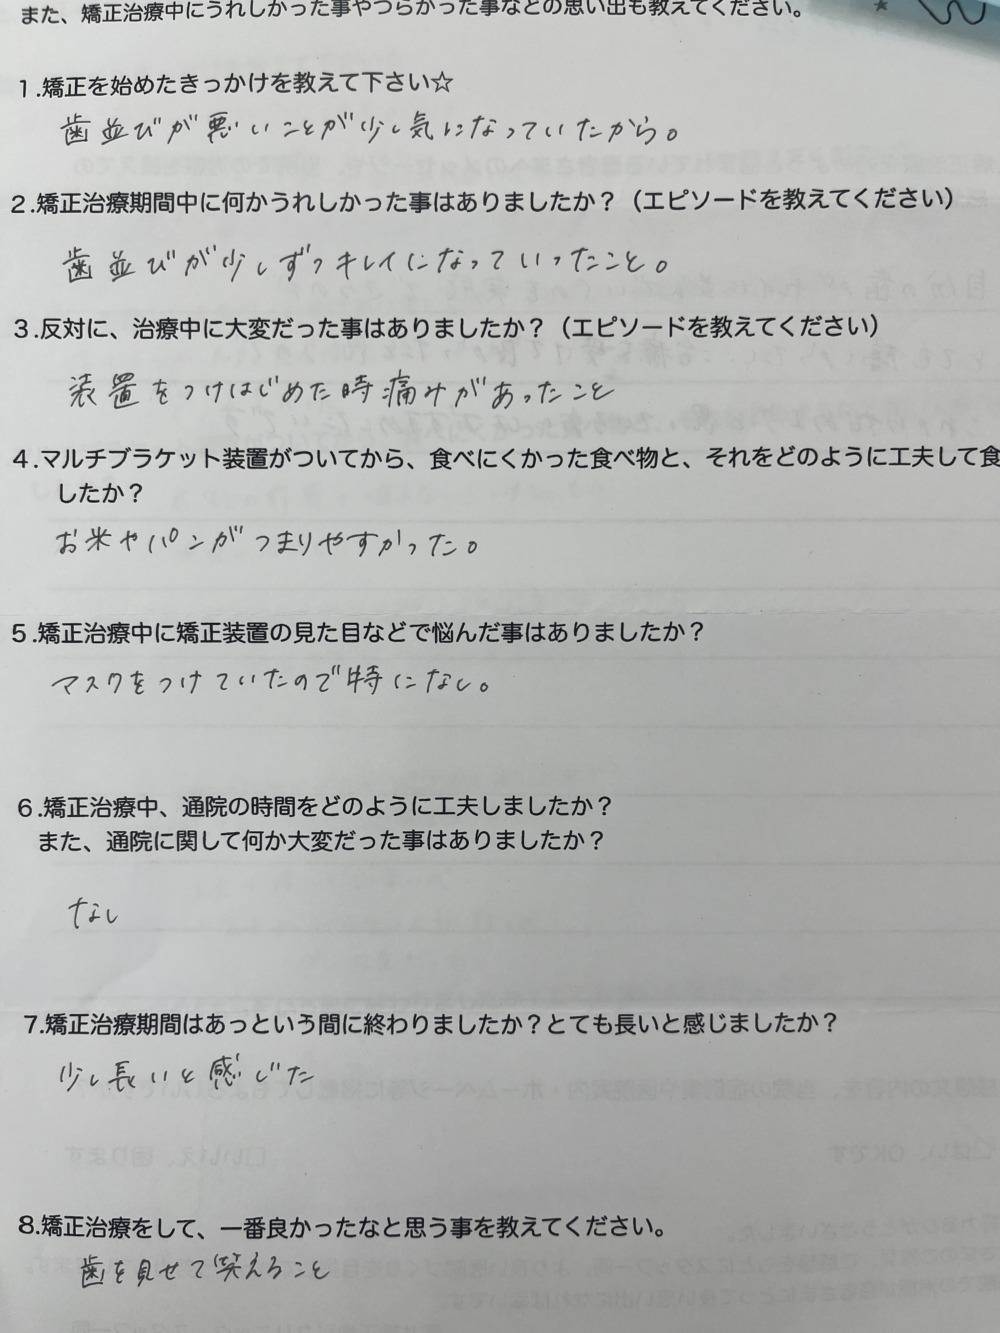 また、矯正治療中にうれしかった事やつらかった事などの思い出も教えてください。
１.矯正を始めたきっかけを教えて下さい☆
歯並びが悪いことが少し気になっていたから。
２.矯正治療期間中に何かうれしかった事はありましたか？（エピソードを教えてください）
歯並びが少しずつキレイになっていったこと。
３.反対に、治療中に大変だった事はありましたか？（エピソードを教えてください）
装置をつけはじめた時痛みがあったこと
４.マルチブラケット装置がついてから、食べにくかった食べ物と、それをどのように工夫して食
したか？
お米やパンがつまりやすかった。
５.矯正治療中に矯正装置の見た目などで悩んだ事はありましたか？
マスクをつけていたので特になし。
６.矯正治療中、通院の時間をどのように工夫しましたか？
また、通院に関して何か大変だった事はありましたか？
なし
7.矯正治療期間はあっという間に終わりましたか？とても長いと感じましたか？
少し長いと感じた
8.矯正治療をして、一番良かったなと思う事を教えてください。
歯を見せて笑えること